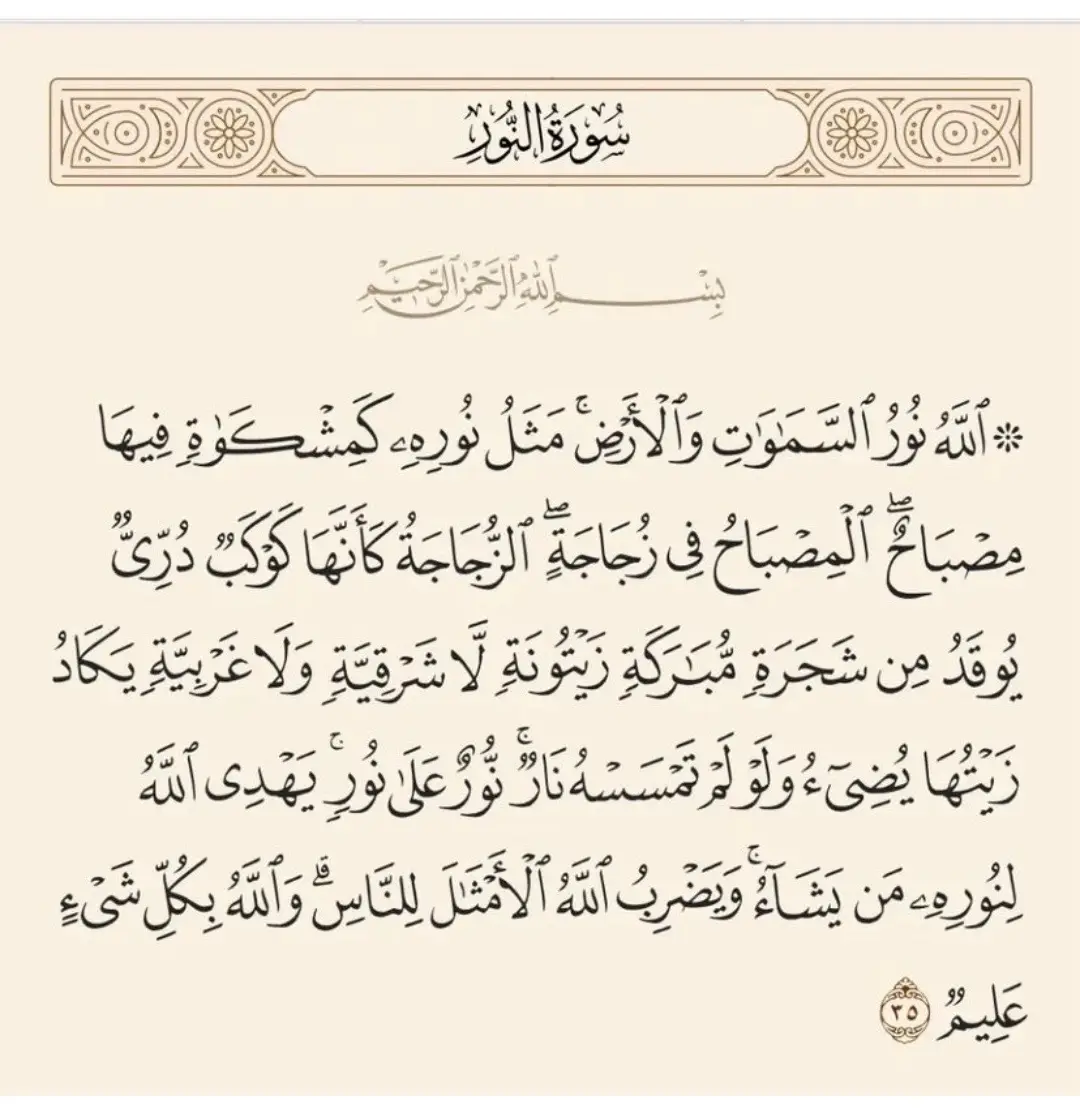 سُورَةُ النُّورِ
بِسْمِ ٱللَّهِ ٱلرَّحْمَٰنِ ٱلرَّحِيمِ
۞ ٱللَّهُ نُورُ ٱلسَّمَٰوَٰتِ وَٱلْأَرْضِۚ مَثَلُ نُورِهِۦ كَمِشْكَوٰةٍ فِيهَا
مِصْبَاحٌۖ ٱلْمِصْبَاحُ فِى زُجَاجَةٍۖ ٱلزُّجَاجَةُ كَأَنَّهَا كَوْكَبٌ دُرِّىٌّ
يُوقَدُ مِن شَجَرَةٍ مُّبَٰرَكَةٍ زَيْتُونَةٍ لَّا شَرْقِيَّةٍ وَلَا غَرْبِيَّةٍ يَكَادُ
زَيْتُهَا يُضِىٓءُ وَلَوْ لَمْ تَمْسَسْهُ نَارٌۚ نُّورٌ عَلَىٰ نُورٍۚ يَهْدِى ٱللَّهُ
لِنُورِهِۦ مَن يَشَآءُۚ وَيَضْرِبُ ٱللَّهُ ٱلْأَمْثَٰلَ لِلنَّاسِۗ وَٱللَّهُ بِكُلِّ شَىْءٍ
عَلِيمٌ ٣٥